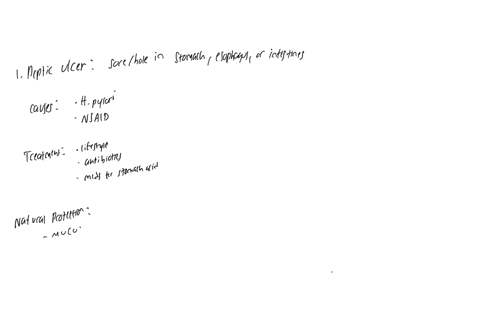 1. Peptic Ulcer: sore/hole in stomach, esophagus, or intestines
causes: · H. pylori
· NSAID
Treatments: · lifestyle
· antibiotics
· meds for stomach acid
Natural Protection:
- mucu